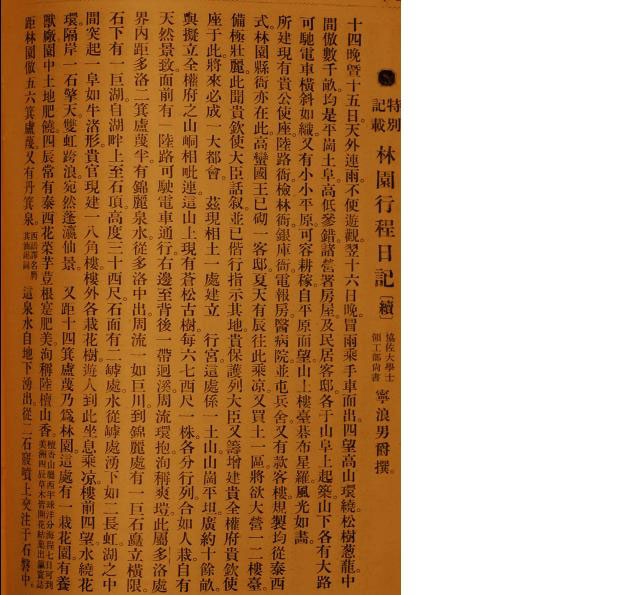 特別記載 林園行程日記〔續〕 協佐大學士領工部尚書 寧浪男爵撰。
十四晚暨十五日。天外連雨。不便遊觀。翌十六日晚。冒雨乘手車而出。四望高山環繞。松樹葱蘢。中
間倣數千畝。均是平崗土阜。高低參錯。諸營署房屋及民居客邸。各于山阜上起築。山下各有大路
可馳電車。橫斜如織。又有小小平原。可容耕稼。自平原而望。山上樓臺。碁布星羅。風光如畵。
所建現有貴公使座。陸路衙。檢林衙。銀庫衙。電報房。醫病院並屯兵舍。又有款客樓。規製均從泰西
式。林園縣衙亦在此。高蠻國王已砌一客邸。夏天有辰往此乘凉。又買土一區。將欲大營一二樓臺。
備極壯麗。此聞貴欽使大臣話叙。並已偕行指示其地。貴保護列大臣又籌增建貴全權府貴欽使
座于此。將來必成一大都會。 茲現相土一處建立 行宮。這處係一土山。山崗平坦。廣約十餘畝。
與擬立全權府之山峒相毗連。這山上現有蒼松古樹。每六七西尺一株。各分行列。合如人栽。自有
天然景致。面前有一陸路。可駛電車通行。右邊至背後一帶迴溪。周流環抱。洵稱爽塏。此屬多洛處
界內。距多洛二箕盧蔑半。有錦麗泉。水從多洛中出。周流一如巨川。到錦麗處有一巨石矗立橫限。
石下有一巨湖。自湖畔上至石頂。高度三十四尺。石面有二罅。處水從罅處湧下。如二長虹。湖之中
間突起一阜如牛洛形。貴官現建一八角樓。樓外各栽花樹。遊人到此坐息乘凉。樓前四望。水繞花
環。隔岸一石擎天。雙虹跨浪。宛然蓬瀛仙景。 又距十四箕盧蔑乃爲林園。這處有一栽花園。有養
獸廠。園中土地肥饒。四辰常有泰西花菜芋荳根荄肥美。洵稱陸檀山香。
距林園倣五六箕盧蔑。又有丹箕泉。這泉水自地下湧出。從二石竅噴上。交注于石磐中。